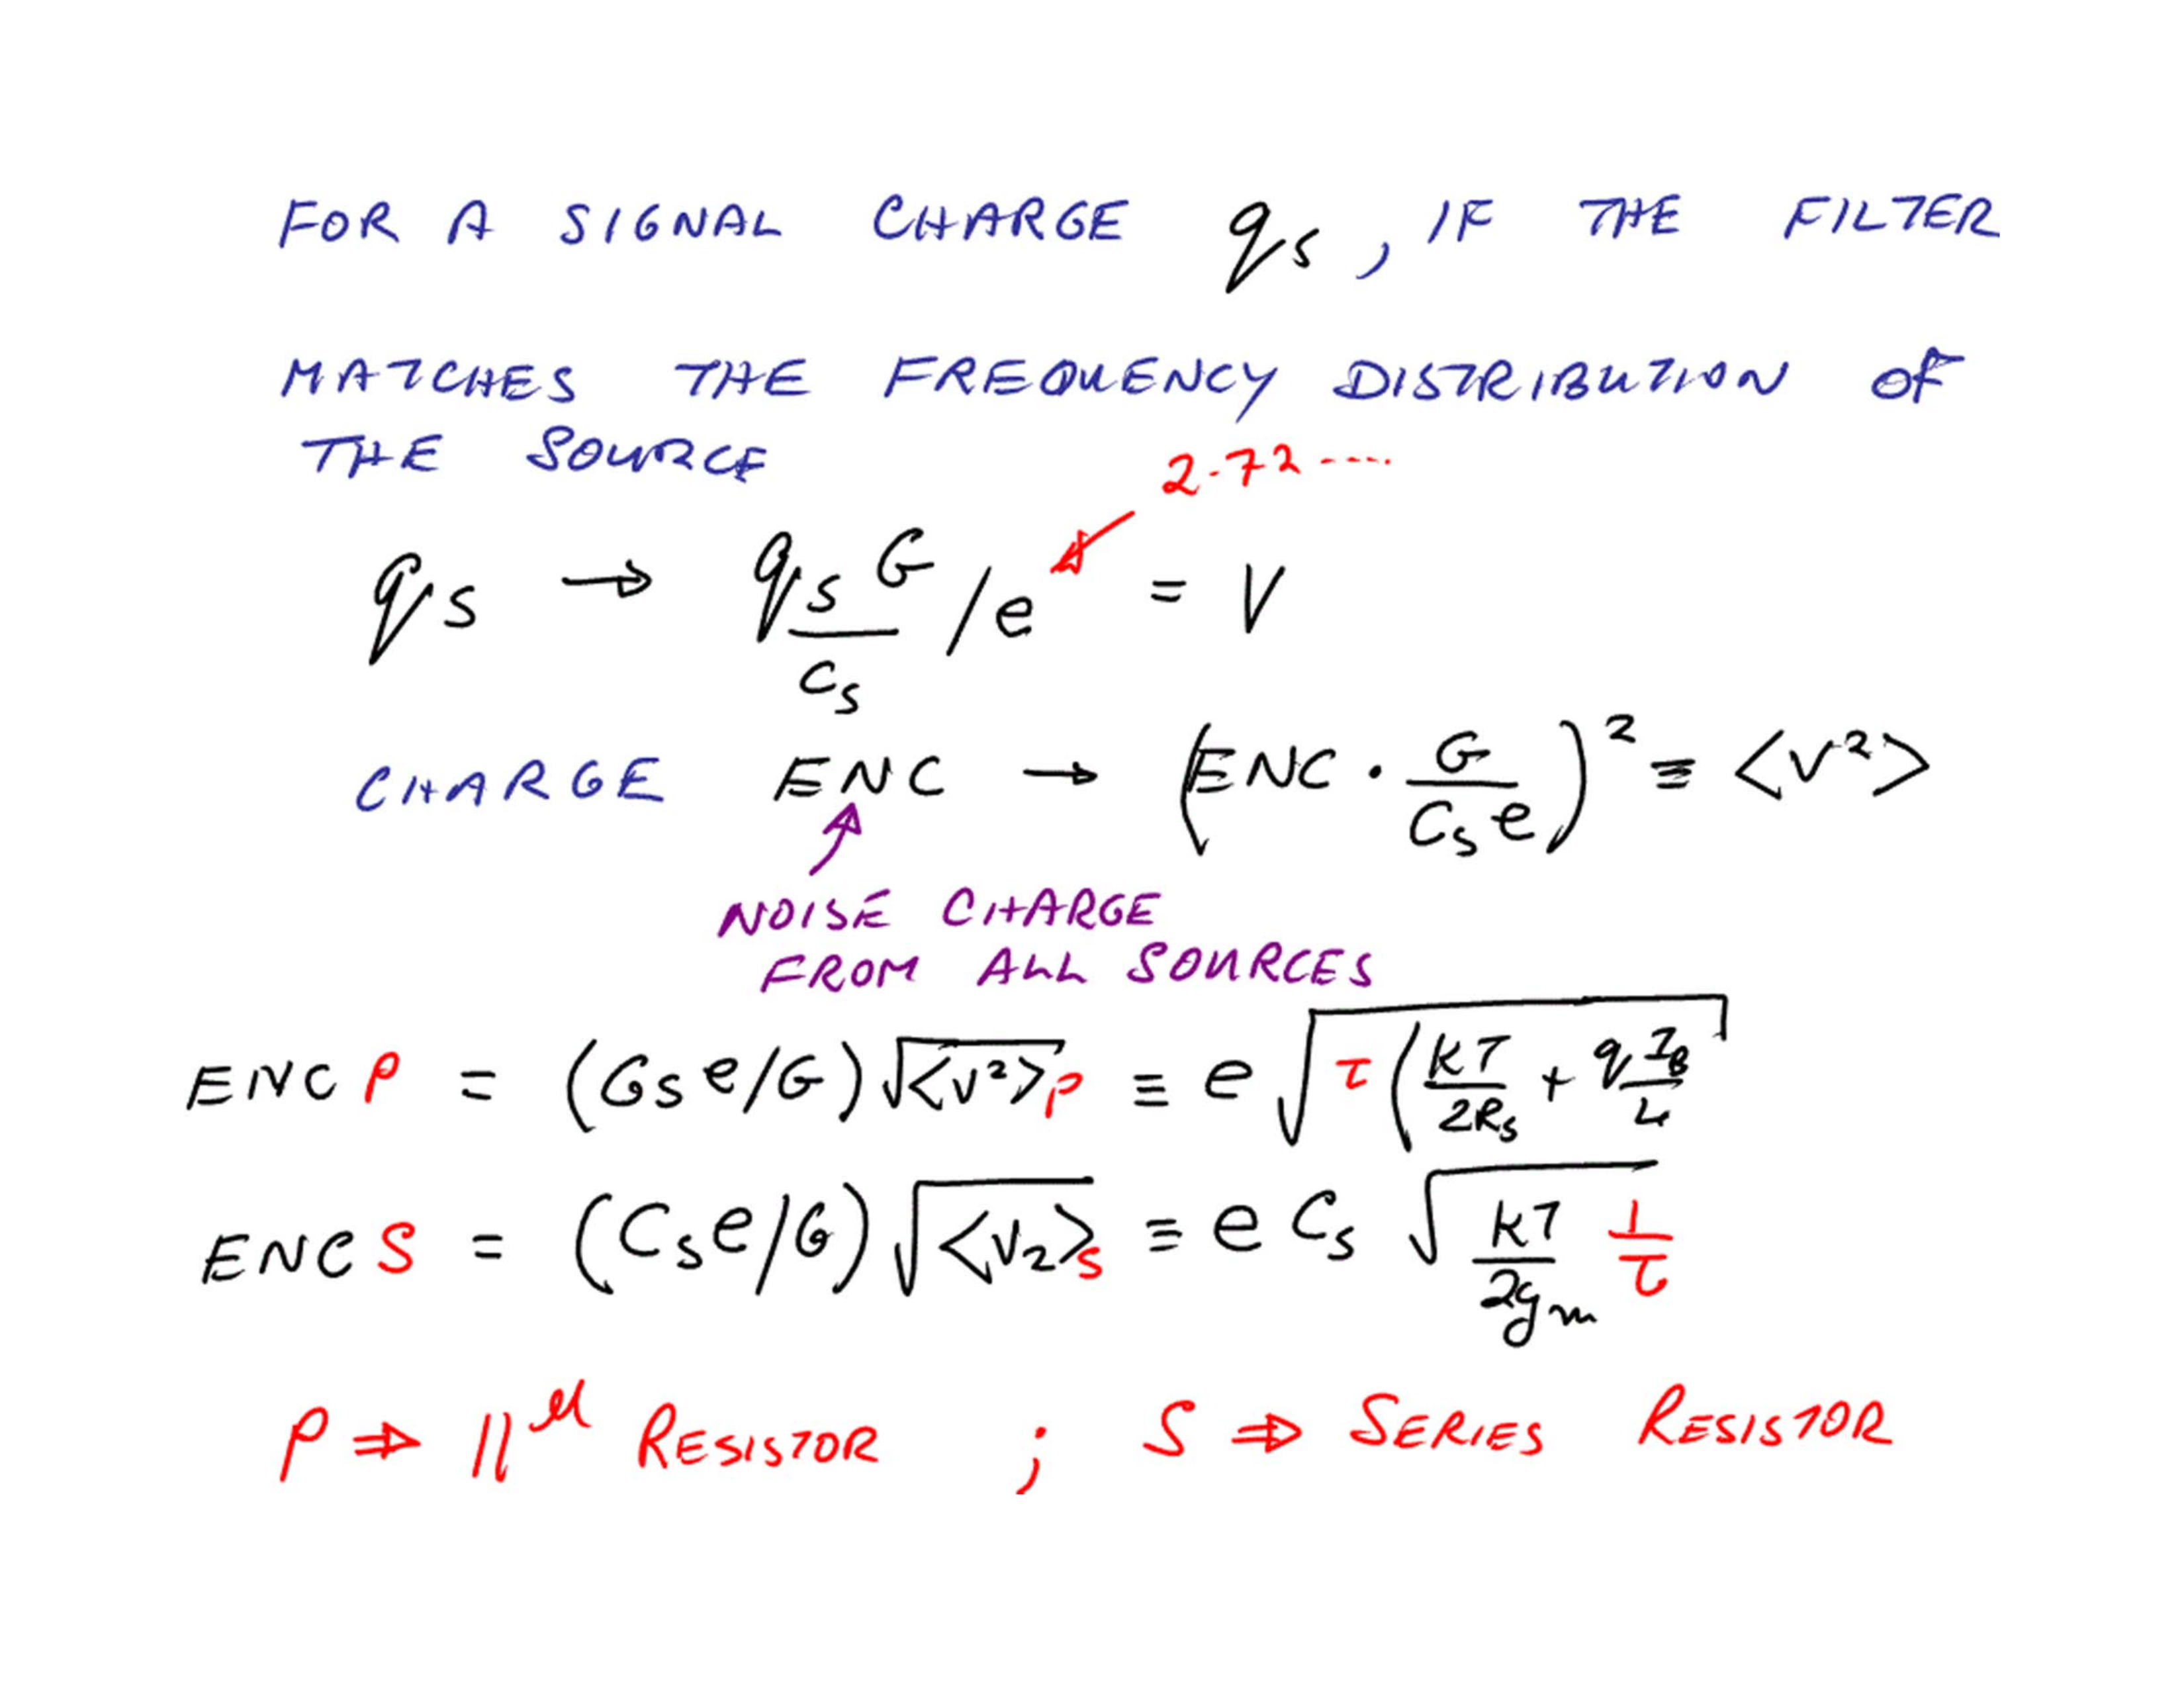 FOR A SIGNAL CHARGE qs, IF THE FILTER
MATCHES THE FREQUENCY DISTRIBUTION OF
THE SOURCE
2.72 ----
qs → qs G / Cs /e = V
CHARGE ENC → (ENC · G / Cs e)² ≡ <V²>
NOISE CHARGE
FROM ALL SOURCES
ENC P = (Gs e/G) √<V²>P ≡ e √τ(kT / 2Rs + q IB / 4
ENC S = (Cs e/G) √<V2>S ≡ e Cs √kT / 2gm 1 / τ
P ⇒ ||el RESISTOR ; S ⇒ SERIES RESISTOR